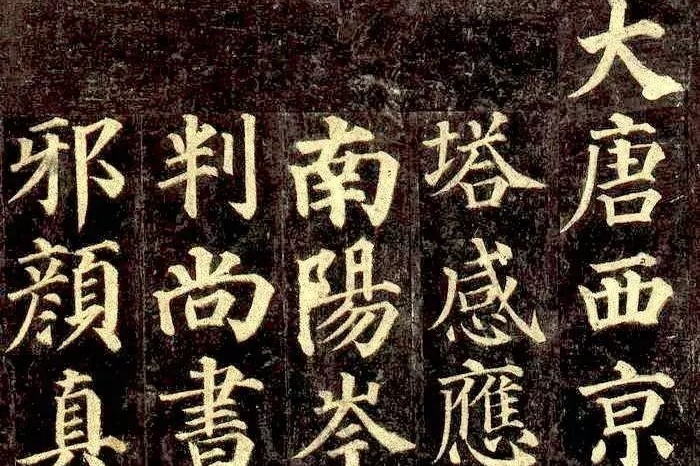 大唐西京
塔感應
南陽岑
判尚書
邪顔真